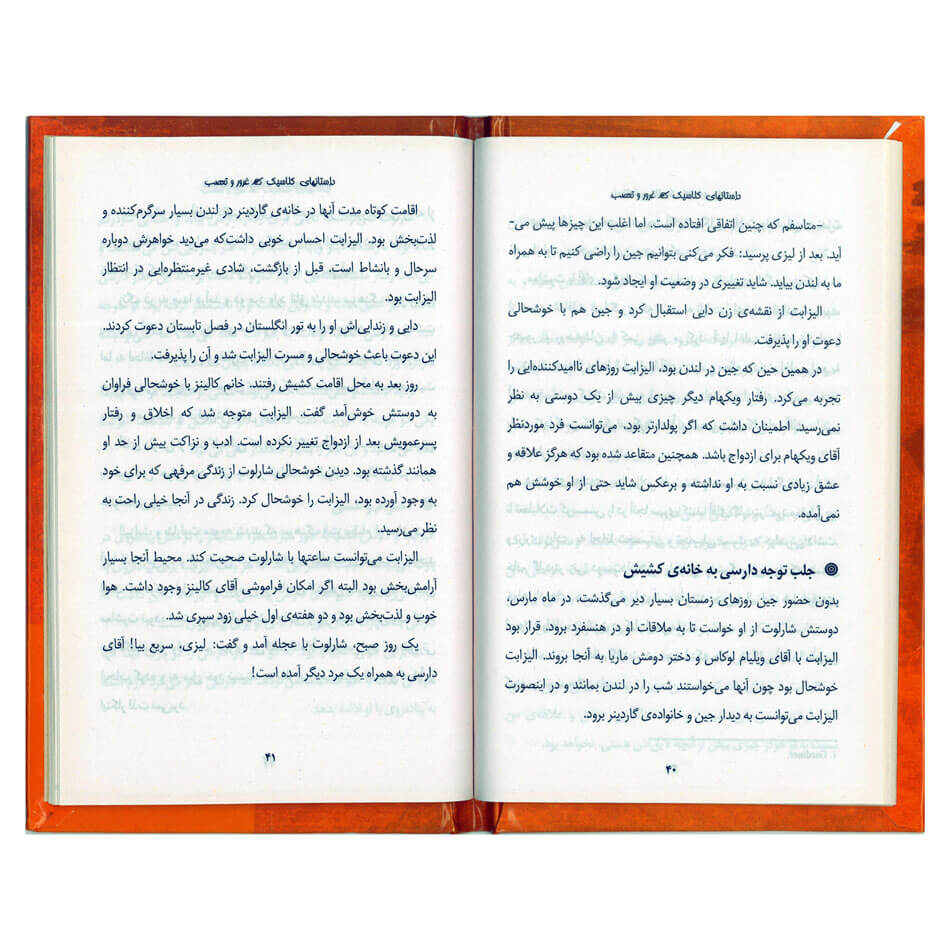 داستانهای کلاسیک غرور و تعصب
-متاسفم که چنین اتفاقی افتاده است. اما اغلب این چیزها پیش می-
آید. بعد از لیزی پرسید: فکر می‌کنی بتوانیم جین را راضی کنیم تا به همراه
ما به لندن بیاید. شاید تغییری در وضعیت او ایجاد شود.
الیزابت از نقشه‌ی زن دایی استقبال کرد و جین هم با خوشحالی
دعوت او را پذیرفت.
در همین حین که جین در لندن بود، الیزابت روزهای ناامیدکننده‌ایی را
تجربه می‌کرد. رفتار ویکهام دیگر چیزی بیش از یک دوستی به نظر
نمی‌رسید. اطمینان داشت که اگر پولدارتر بود، می‌توانست فرد موردنظر
آقای ویکهام برای ازدواج باشد. همچنین متقاعد شده بود که هرگز علاقه و
عشق زیادی نسبت به او نداشته و برعکس شاید حتی از او خوشش هم
نمی‌آمده.
جلب توجه دارسی به خانه‌ی کشیش
بدون حضور جین روزهای زمستان بسیار دیر می‌گذشت. در ماه مارس،
دوستش شارلوت از او خواست تا به ملاقات او در هنسفرد برود. قرار بود
الیزابت با آقای ویلیام لوکاس و دختر دومش ماریا به آنجا بروند. الیزابت
خوشحال بود چون آنها می‌خواستند شب را در لندن بمانند و در اینصورت
الیزابت می‌توانست به دیدار جین و خانواده‌ی گاردینر برود.
۴۰
داستانهای کلاسیک غرور و تعصب
اقامت کوتاه مدت آنها در خانه‌ی گاردینر در لندن بسیار سرگرم‌کننده و
لذت‌بخش بود. الیزابت احساس خوبی داشت‌که می‌دید خواهرش دوباره
سرحال و بانشاط است. قبل از بازگشت، شادی غیرمنتظره‌ایی در انتظار
الیزابت بود.
دایی و زندایی‌اش او را به تور انگلستان در فصل تابستان دعوت کردند.
این دعوت باعث خوشحالی و مسرت الیزابت شد و آن را پذیرفت.
روز بعد به محل اقامت کشیش رفتند. خانم کالینز با خوشحالی فراوان
به دوستش خوش‌آمد گفت. الیزابت متوجه شد که اخلاق و رفتار
پسرعمویش بعد از ازدواج تغییر نکرده است. ادب و نزاکت بیش از حد او
همانند گذشته بود. دیدن خوشحالی شارلوت از زندگی مرفهی که برای خود
به وجود آورده بود، الیزابت را خوشحال کرد. زندگی در آنجا خیلی راحت به
نظر می‌رسید.
الیزابت می‌توانست ساعتها با شارلوت صحبت کند. محیط آنجا بسیار
آرامش‌بخش بود البته اگر امکان فراموشی آقای کالینز وجود داشت. هوا
خوب و لذت‌بخش بود و دو هفته‌ی اول خیلی زود سپری شد.
یک روز صبح، شارلوت با عجله آمد و گفت: لیزی، سریع بیا! آقای
دارسی به همراه یک مرد دیگر آمده است!
۴۱